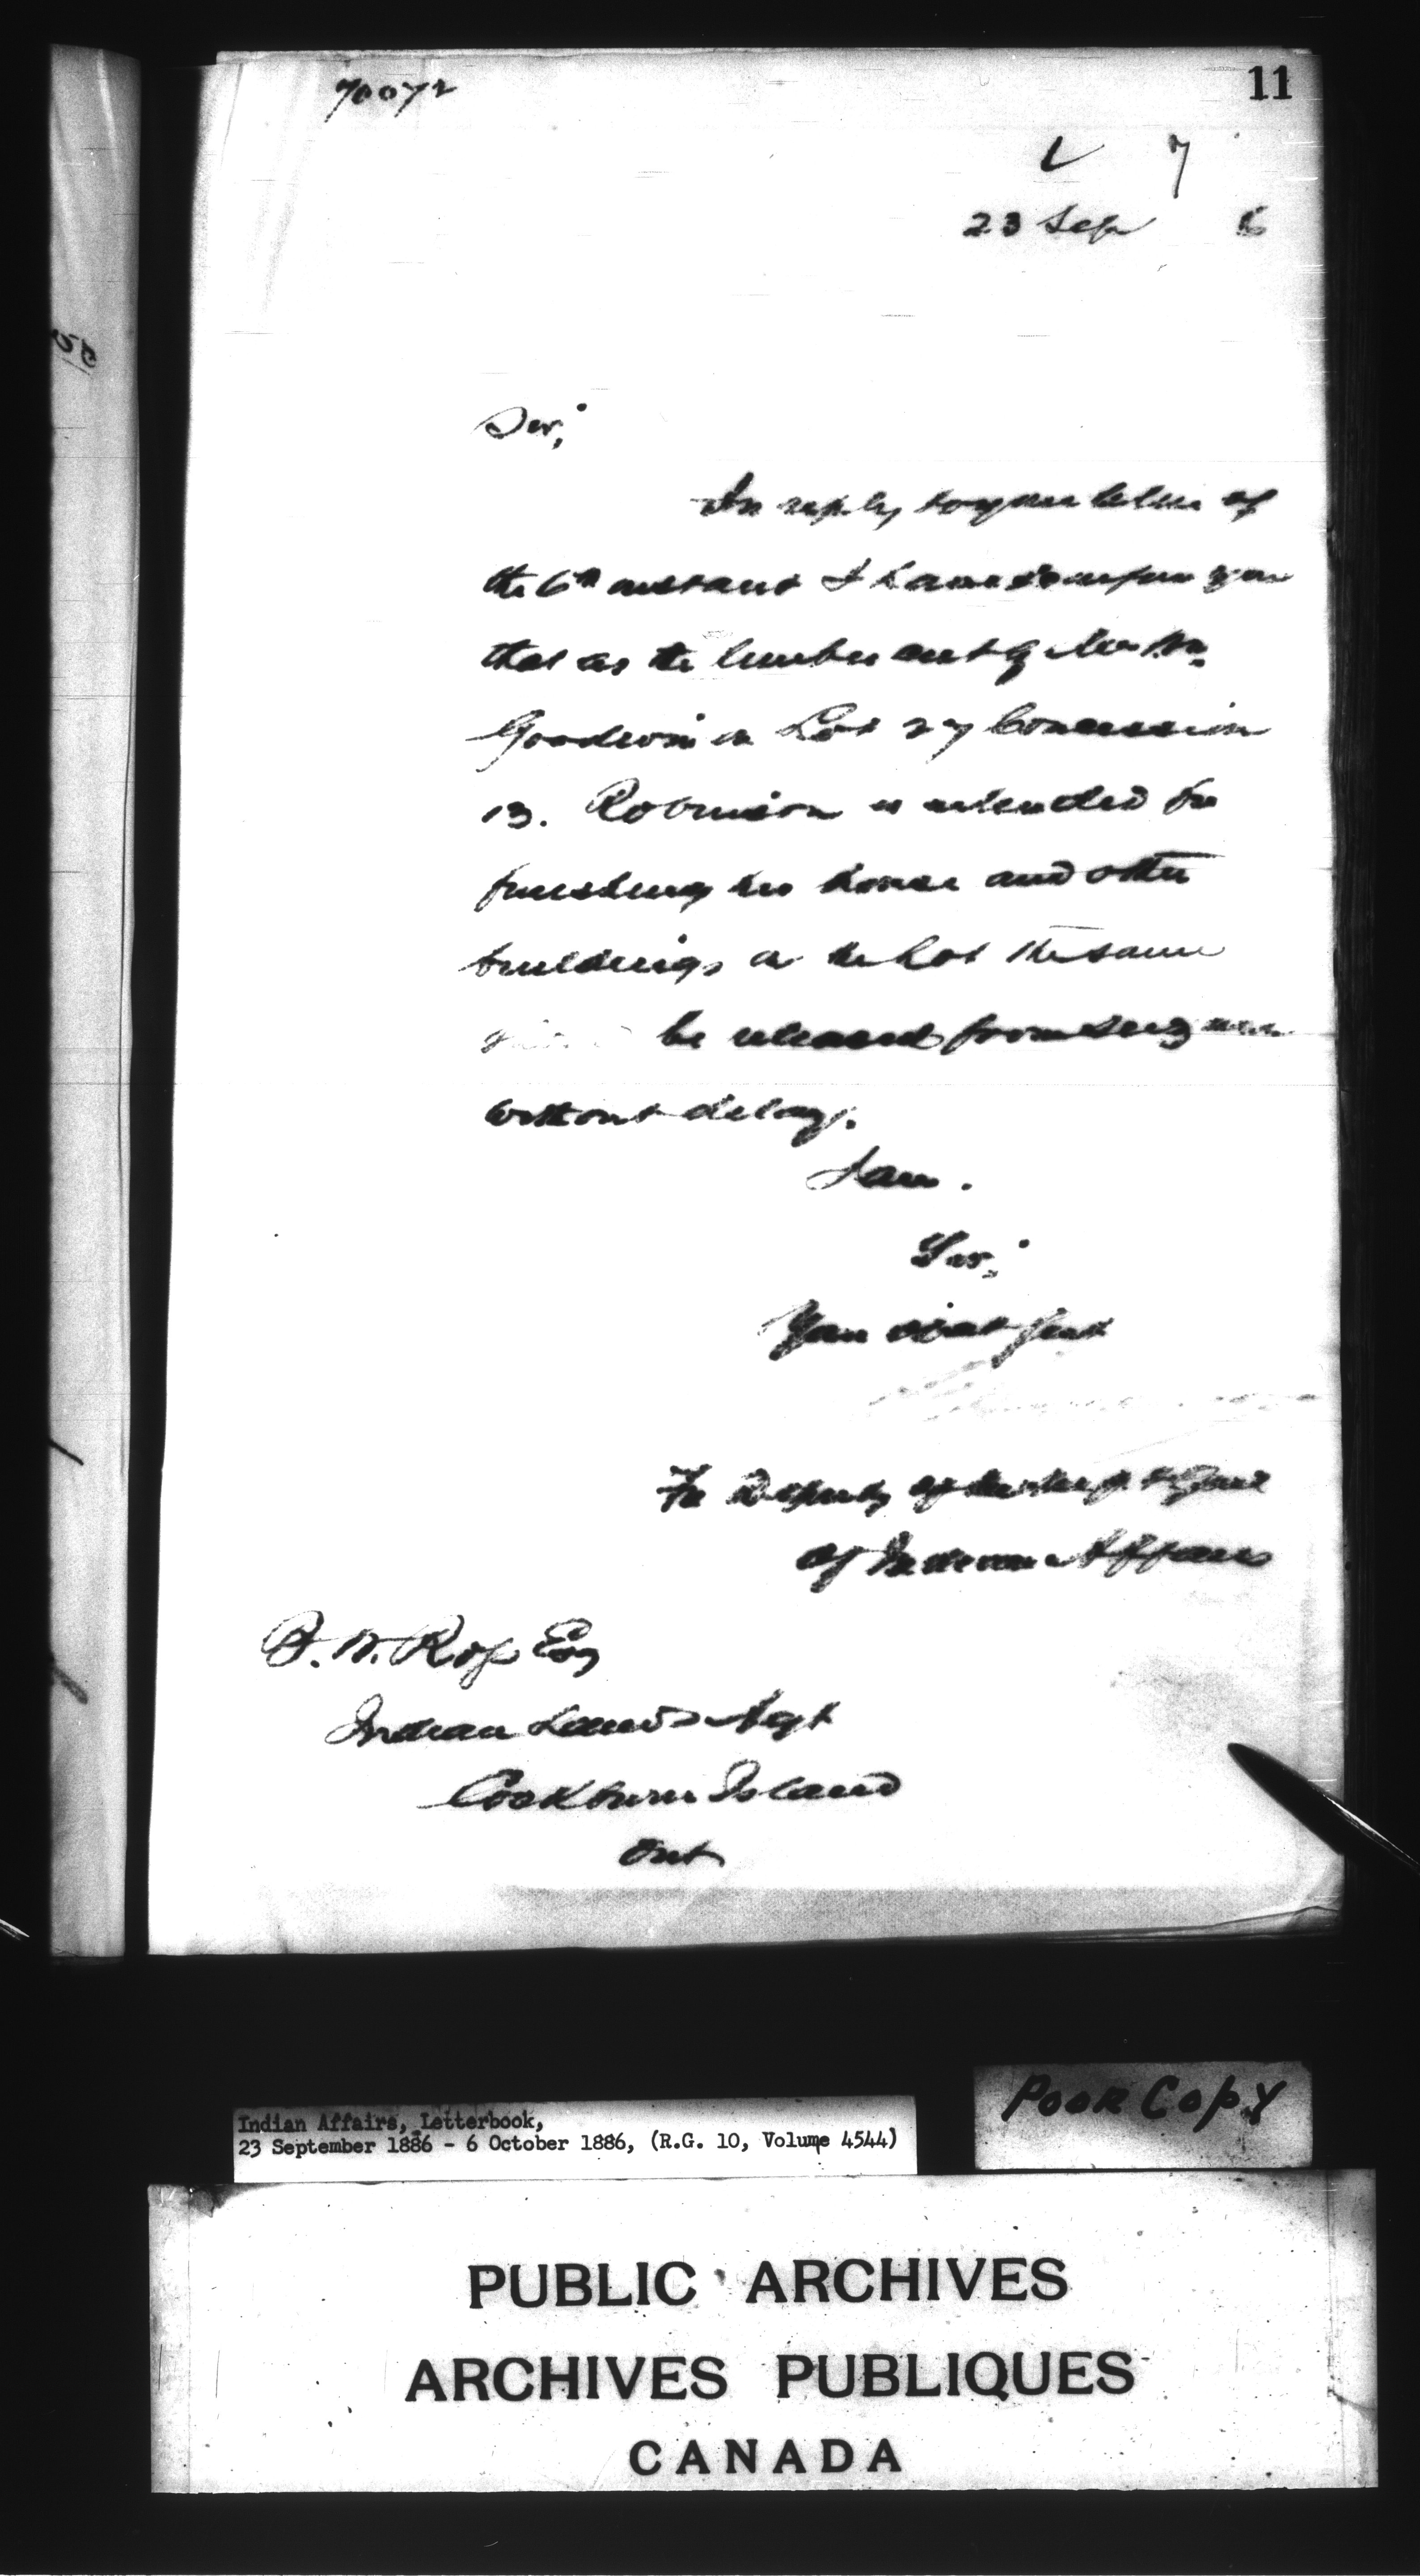 70072
11
L 7
23 Sep 6
Sir,
In reply to your letter of
the 6th instant I have to inform you
that as the lumber cut by Mr Wm
Goodwin on Lot 27 Concession
13. Robinson is intended for
finishing his house and other
buildings on the Lot the same
be released from seizure
without delay.
I am.
Sir,
Your obedt Servt
For Deputy of the Supt Genl
of Indian Affairs
B. W. Ross Esq
Indian Lands Agt
Cockburn Island
Ont
Poor Copy
Indian Affairs, Letterbook,
23 September 1886 - 6 October 1886, (R.G. 10, Volume 4544)
PUBLIC ARCHIVES
ARCHIVES PUBLIQUES
CANADA